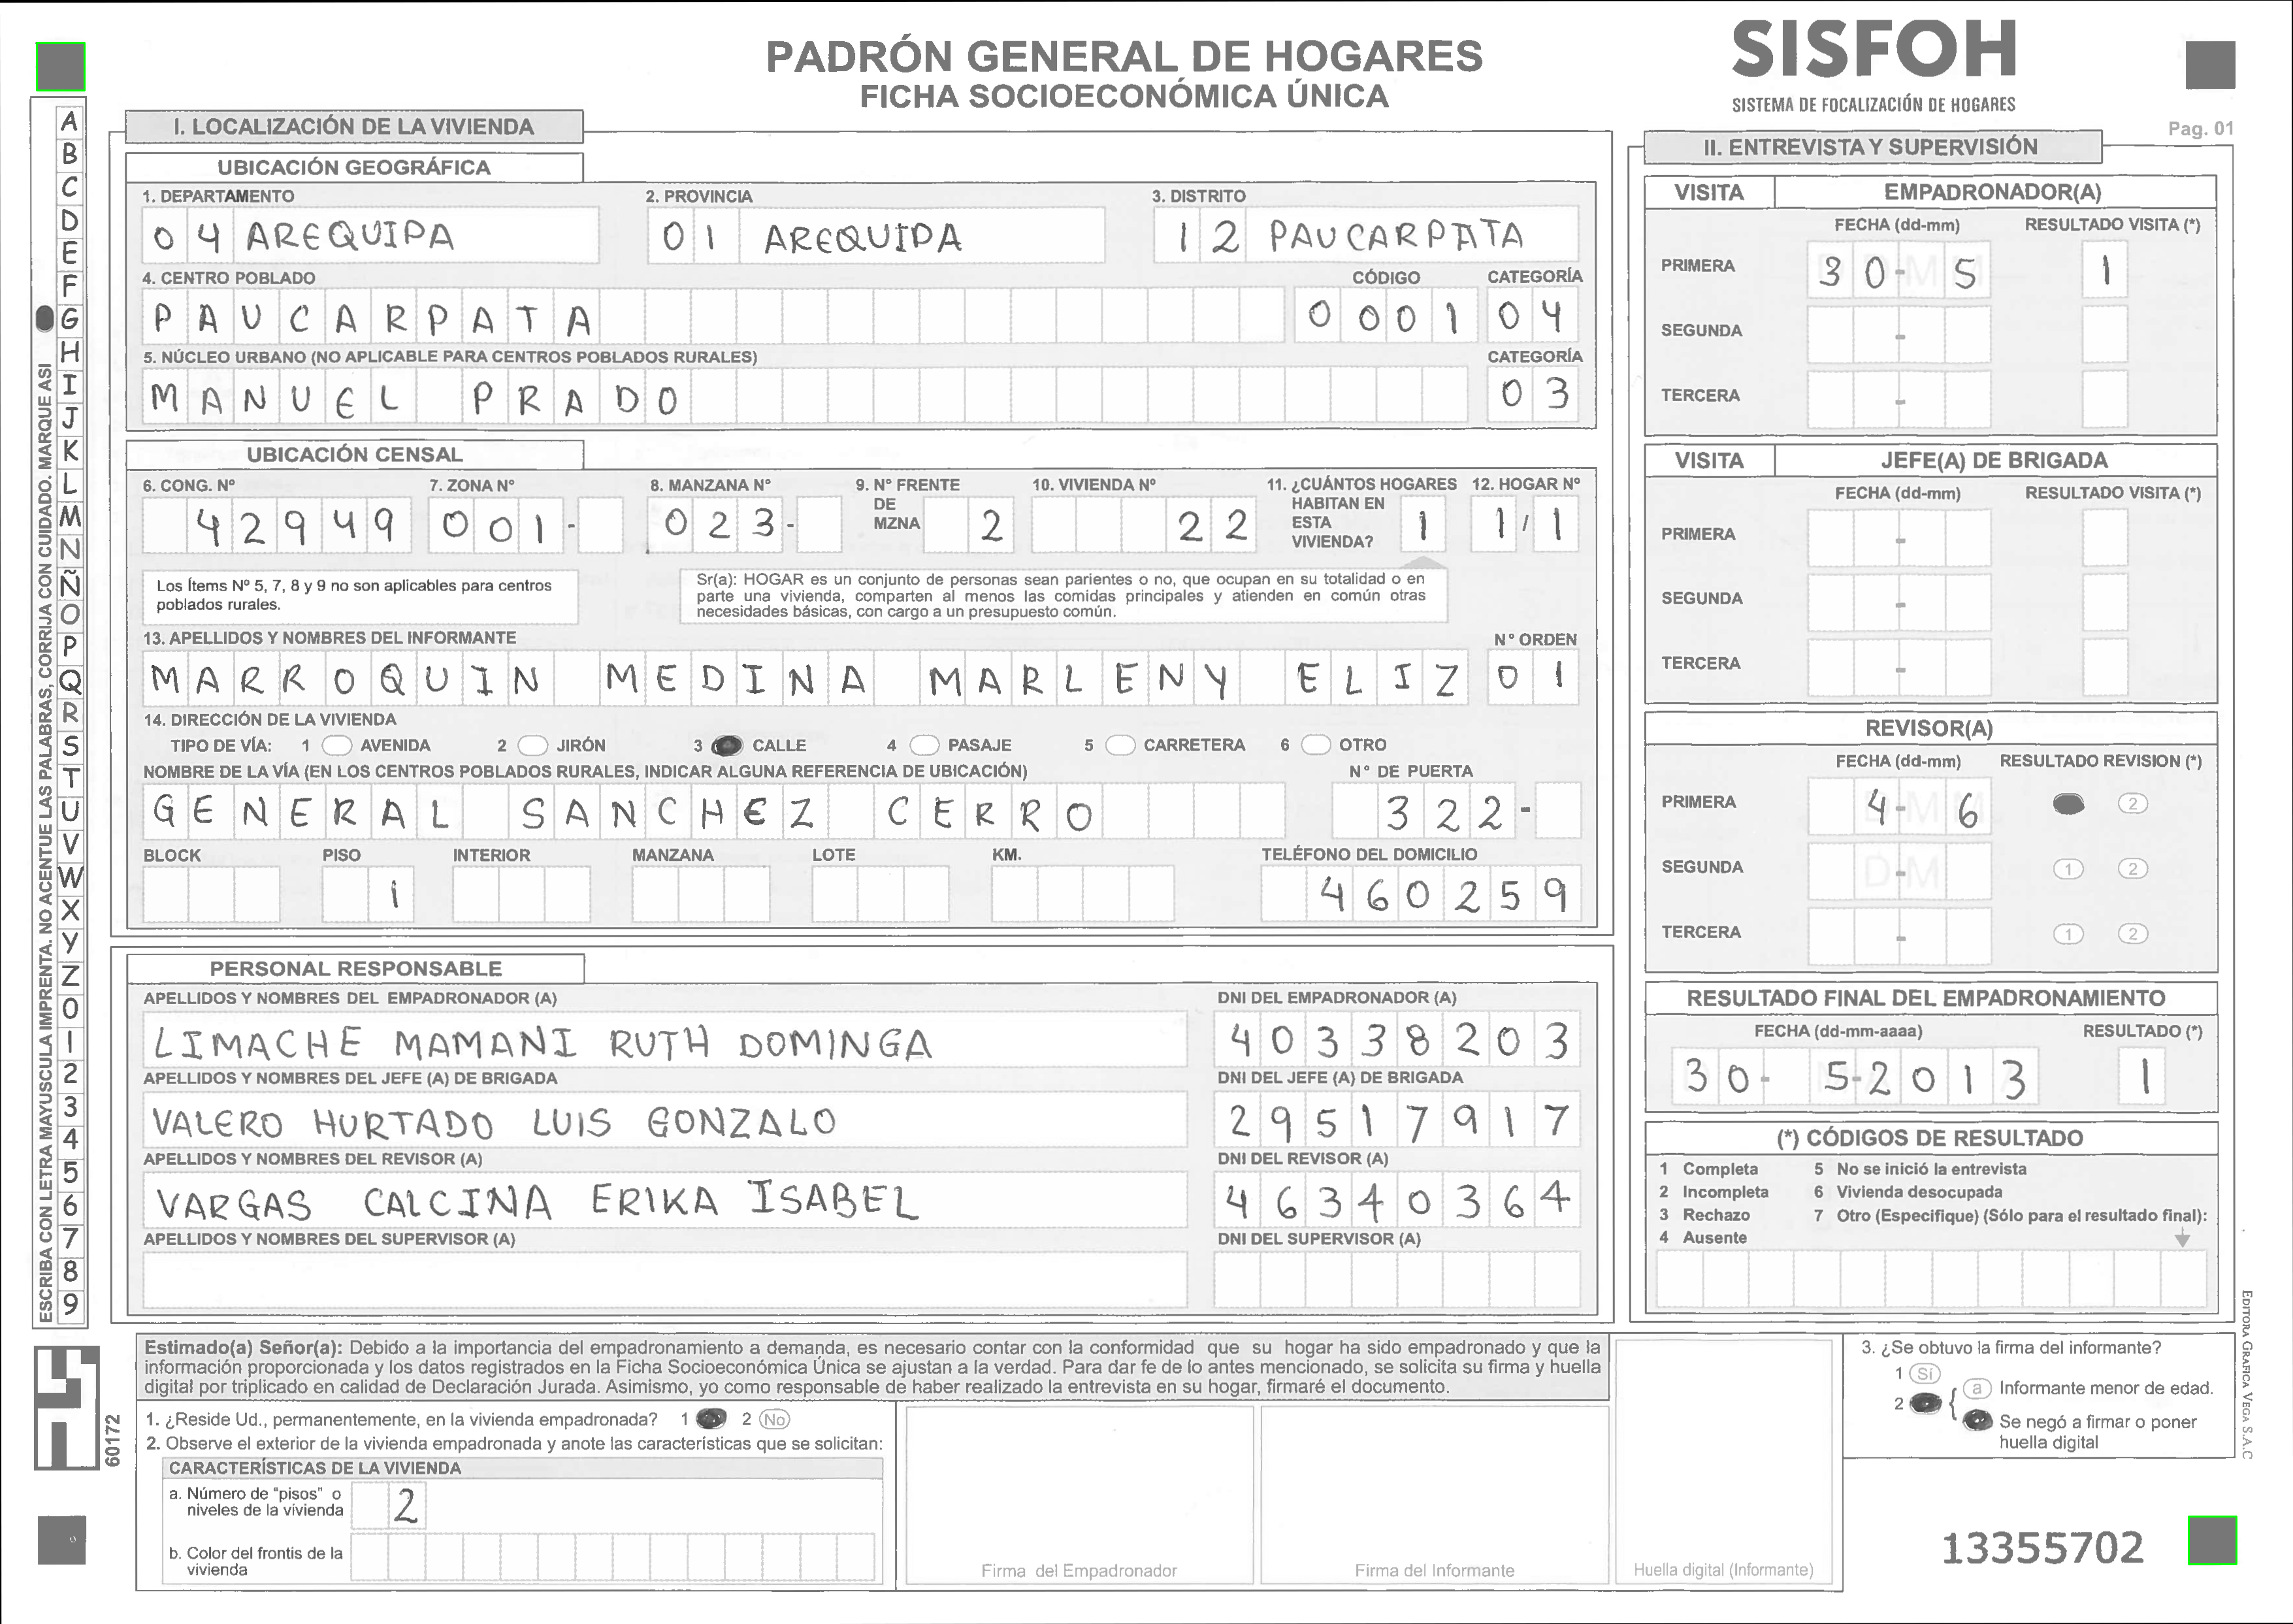 PADRÓN GENERAL DE HOGARES
FICHA SOCIOECONÓMICA ÚNICA
SISFOH
SISTEMA DE FOCALIZACIÓN DE HOGARES
Pag. 01
ESCRIBA CON LETRA MAYUSCULA IMPRENTA. NO ACENTUE LAS PALABRAS, CORRIJA CON CUIDADO. MARQUE ASI
A
B
C
D
E
F
G
H
I
J
K
L
M
N
Ñ
O
P
Q
R
S
T
U
V
W
X
Y
Z
0
1
2
3
4
5
6
7
8
9
I. LOCALIZACIÓN DE LA VIVIENDA
UBICACIÓN GEOGRÁFICA
1. DEPARTAMENTO 2. PROVINCIA 3. DISTRITO
04 AREQUIPA 01 AREQUIPA 12 PAUCARPATA
4. CENTRO POBLADO CÓDIGO CATEGORÍA
PAUCARPATA 0001 04
5. NÚCLEO URBANO (NO APLICABLE PARA CENTROS POBLADOS RURALES) CATEGORÍA
MANUEL PRADO 03
UBICACIÓN CENSAL
6. CONG. Nº 7. ZONA Nº 8. MANZANA Nº 9. Nº FRENTE DE MZNA 10. VIVIENDA Nº 11. ¿CUÁNTOS HOGARES HABITAN EN ESTA VIVIENDA? 12. HOGAR Nº
42949 001- 023- 2 22 1 1/1
Los Ítems Nº 5, 7, 8 y 9 no son aplicables para centros
poblados rurales.
Sr(a): HOGAR es un conjunto de personas sean parientes o no, que ocupan en su totalidad o en
parte una vivienda, comparten al menos las comidas principales y atienden en común otras
necesidades básicas, con cargo a un presupuesto común.
13. APELLIDOS Y NOMBRES DEL INFORMANTE Nº ORDEN
MARROQUIN MEDINA MARLENY ELIZ 01
14. DIRECCIÓN DE LA VIVIENDA
TIPO DE VÍA: 1 AVENIDA 2 JIRÓN 3 CALLE 4 PASAJE 5 CARRETERA 6 OTRO
NOMBRE DE LA VÍA (EN LOS CENTROS POBLADOS RURALES, INDICAR ALGUNA REFERENCIA DE UBICACIÓN) Nº DE PUERTA
GENERAL SANCHEZ CERRO 322-
BLOCK PISO INTERIOR MANZANA LOTE KM. TELÉFONO DEL DOMICILIO
1 460259
PERSONAL RESPONSABLE
APELLIDOS Y NOMBRES DEL EMPADRONADOR (A) DNI DEL EMPADRONADOR (A)
LIMACHE MAMANI RUTH DOMINGA 40338203
APELLIDOS Y NOMBRES DEL JEFE (A) DE BRIGADA DNI DEL JEFE (A) DE BRIGADA
VALERO HURTADO LUIS GONZALO 29517917
APELLIDOS Y NOMBRES DEL REVISOR (A) DNI DEL REVISOR (A)
VARGAS CALCINA ERIKA ISABEL 46340364
APELLIDOS Y NOMBRES DEL SUPERVISOR (A) DNI DEL SUPERVISOR (A)
II. ENTREVISTA Y SUPERVISIÓN
VISITA EMPADRONADOR(A)
FECHA (dd-mm) RESULTADO VISITA (*)
PRIMERA 30- 5 1
SEGUNDA -
TERCERA -
VISITA JEFE(A) DE BRIGADA
FECHA (dd-mm) RESULTADO VISITA (*)
PRIMERA -
SEGUNDA -
TERCERA -
REVISOR(A)
FECHA (dd-mm) RESULTADO REVISION (*)
PRIMERA 4- 6 2
SEGUNDA D-M 1 2
TERCERA - 1 2
RESULTADO FINAL DEL EMPADRONAMIENTO
FECHA (dd-mm-aaaa) RESULTADO (*)
30- 5-2013 1
(*) CÓDIGOS DE RESULTADO
1 Completa 5 No se inició la entrevista
2 Incompleta 6 Vivienda desocupada
3 Rechazo 7 Otro (Especifique) (Sólo para el resultado final):
4 Ausente
Estimado(a) Señor(a): Debido a la importancia del empadronamiento a demanda, es necesario contar con la conformidad que su hogar ha sido empadronado y que la
información proporcionada y los datos registrados en la Ficha Socioeconómica Única se ajustan a la verdad. Para dar fe de lo antes mencionado, se solicita su firma y huella
digital por triplicado en calidad de Declaración Jurada. Asimismo, yo como responsable de haber realizado la entrevista en su hogar, firmaré el documento.
1. ¿Reside Ud., permanentemente, en la vivienda empadronada? 1 2 No
2. Observe el exterior de la vivienda empadronada y anote las características que se solicitan:
CARACTERÍSTICAS DE LA VIVIENDA
a. Número de "pisos" o
niveles de la vivienda 2
b. Color del frontis de la
vivienda
Firma del Empadronador
Firma del Informante
Huella digital (Informante)
3. ¿Se obtuvo la firma del informante?
1 Sí
2 a Informante menor de edad.
Se negó a firmar o poner
huella digital
60172
13355702
EDITORA GRAFICA VEGA S.A.C